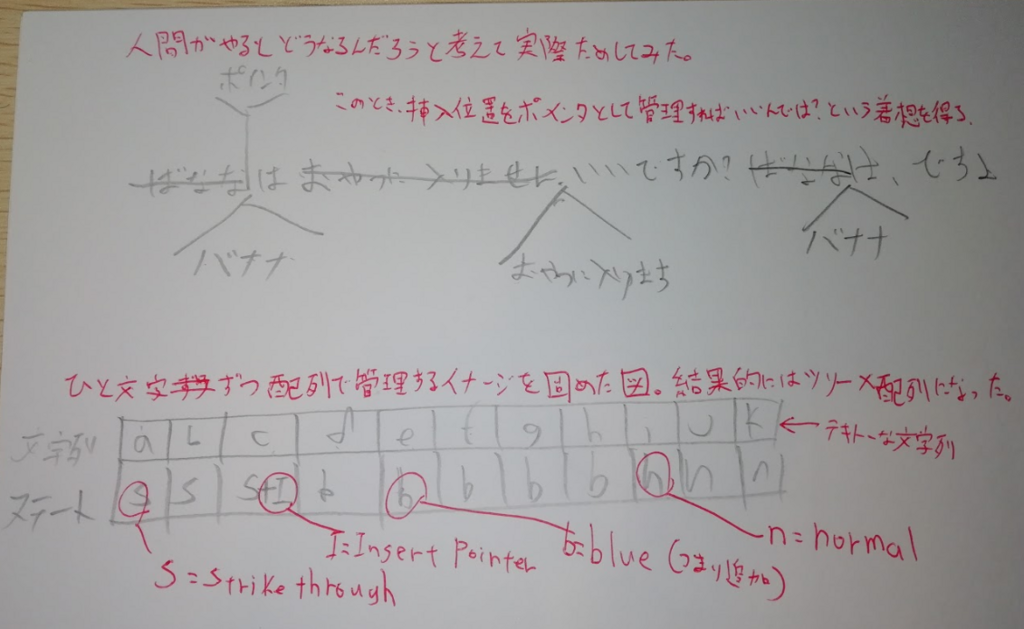 人間がやるとどうなるんだろうと考えて実際ためしてみた。
ポインタ
このとき、挿入位置をポインタとして管理すればいいんでは?という着想を得る。
ばななは おやつに入りません いいですか? ばななは、でうよ
バナナ
おやつに入りまち
バナナ
ひと文字ずつ配列で管理するイメージを固めた図。結果的にはツリー×配列になった。
文字列 a b c d e f g h i j k ← テキトーな文字列
ステート S S S+I b b b b b n n n
I=Insert Pointer
b=blue(つまり追加)
n=normal
S=Strike through